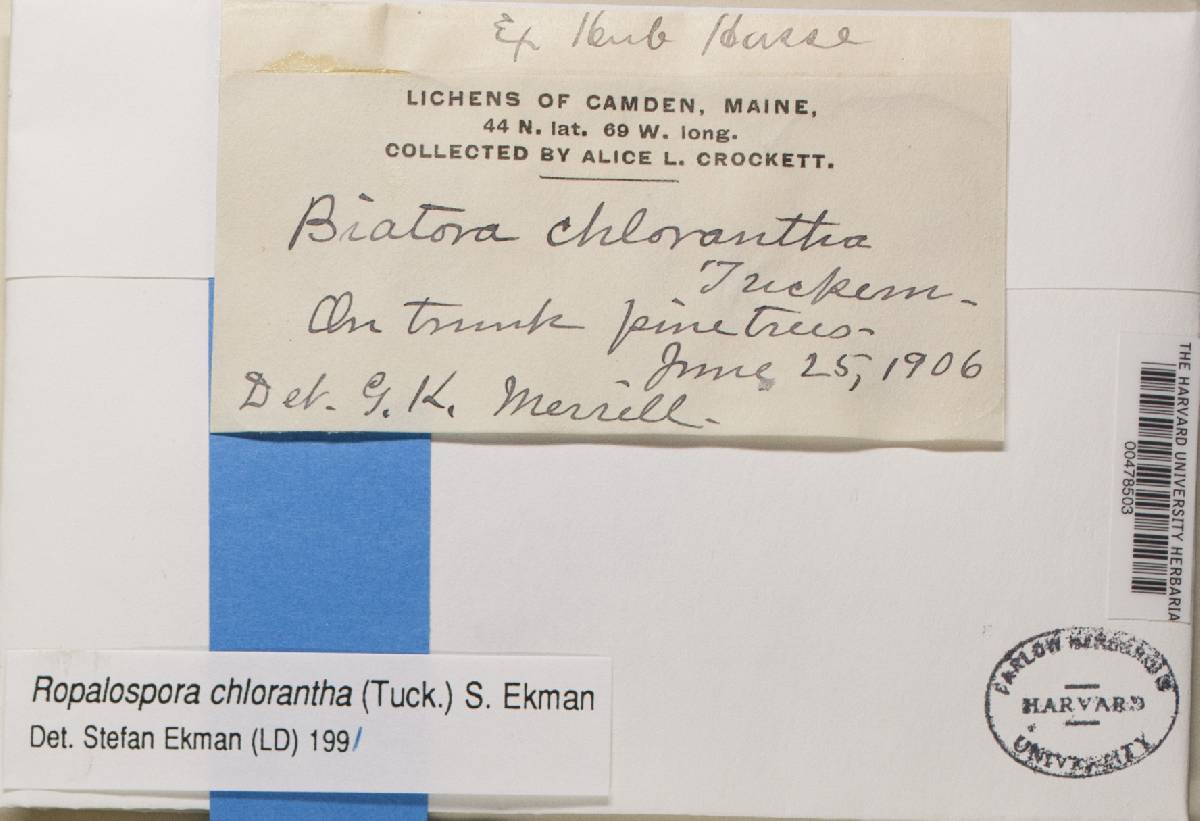 Ex Herb Hasse
LICHENS OF CAMDEN, MAINE,
44 N. lat. 69 W. long.
COLLECTED BY ALICE L. CROCKETT.
Biatora chlorantha
Tuckerm-
On trunk pine trees-
June 25, 1906
Det. G. K. Merrill-
THE HARVARD UNIVERSITY HERBARIA
00478503
Ropalospora chlorantha (Tuck.) S. Ekman
Det. Stefan Ekman (LD) 1991
FARLOW HERBARIUM
HARVARD
UNIVERSITY